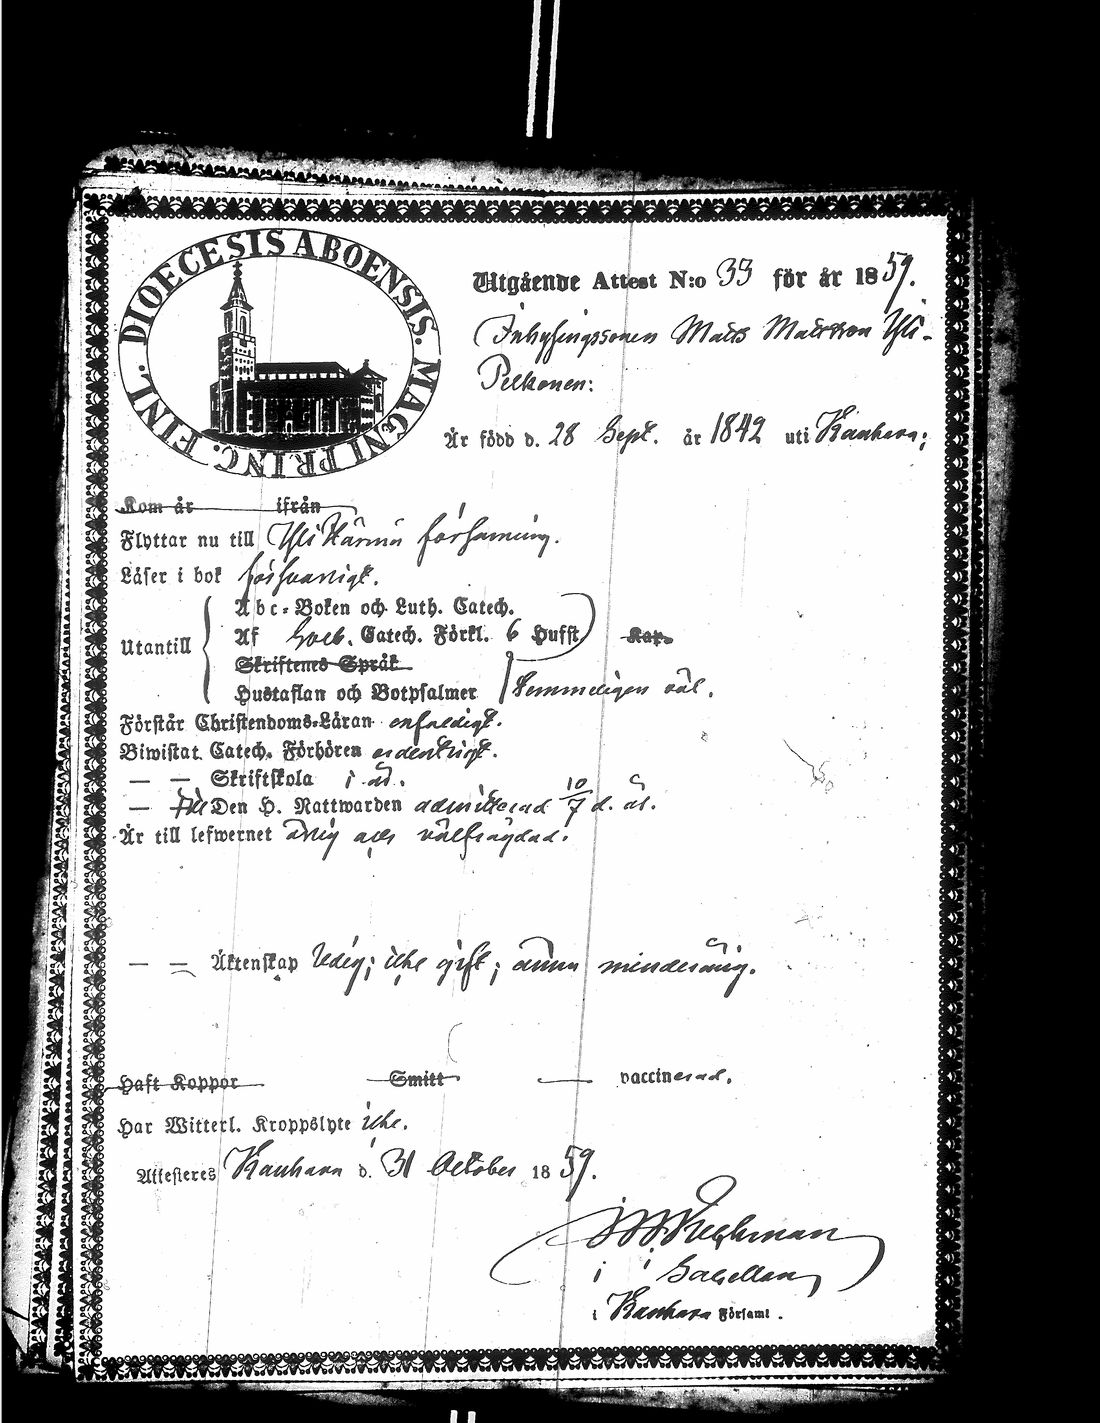 DIOECESIS ABOENSIS. MAGNI PRINC. FINL.
Utgående Attest N:o 33 för år 1859.
Inhysingssonen Matts Mattsson Yli-
Pelkonen:
Är född d. 28 Sept. år 1842 uti Kauhava;
Kom år ifrån
Flyttar nu till Ylikärmä församling.
Läser i bok försvarligt.
Utantill
Abc-Boken och Luth. Catech.
Af Sveb. Catech. Förkl. 6 Hufst Kap.
Skriftenes Språk
Hustaflan och Botpsalmer temmeligen väl.
Förstår Christendoms-Läran enfaldigt.
Biwistat Catech. Förhören ordentligt.
— — Skriftskola i år.
— till Den H. Nattwarden admitterad 10/7 d. år.
Är till lefwernet ärlig och välfrägdad.
— — Äktenskap ledig; icke gift; ännu minderårig.
Haft Koppor Smitt vaccinerad.
Har Witterl. Kroppslyte icke.
Attesteres Kauhava d. 31 October 1859.
Capellan
i Kauhava Församl.